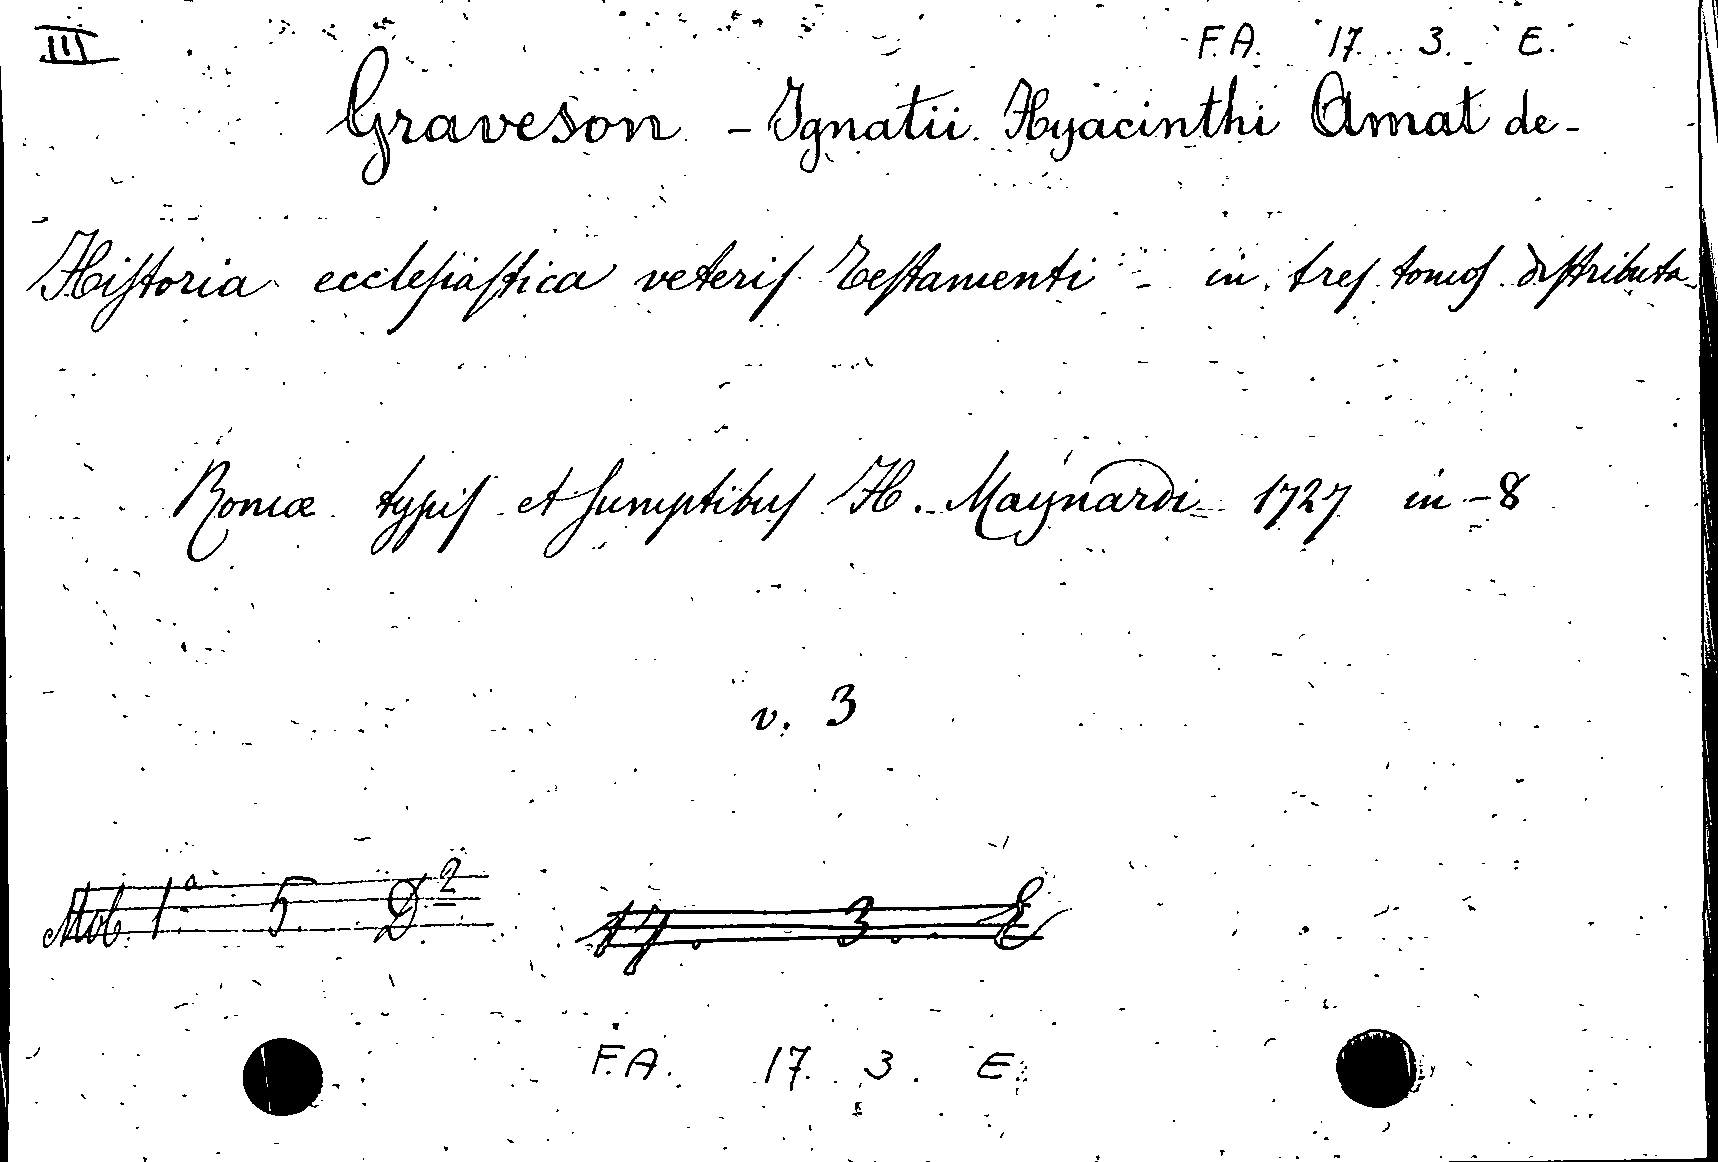 III F.A. 17. 3. E.
Graveson - Ignatii Hyacinthi Amat de -
Hiſtoria eccleſiaſtica veteriſ Teſtamenti - in treſ tomoſ diſtributa -
Romæ typiſ et ſumptibuſ H. Maynardi 1727 in - 8
v. 3
Mob. 1.a 5. D.2 17. 3. E
F.A. 17. 3. E.